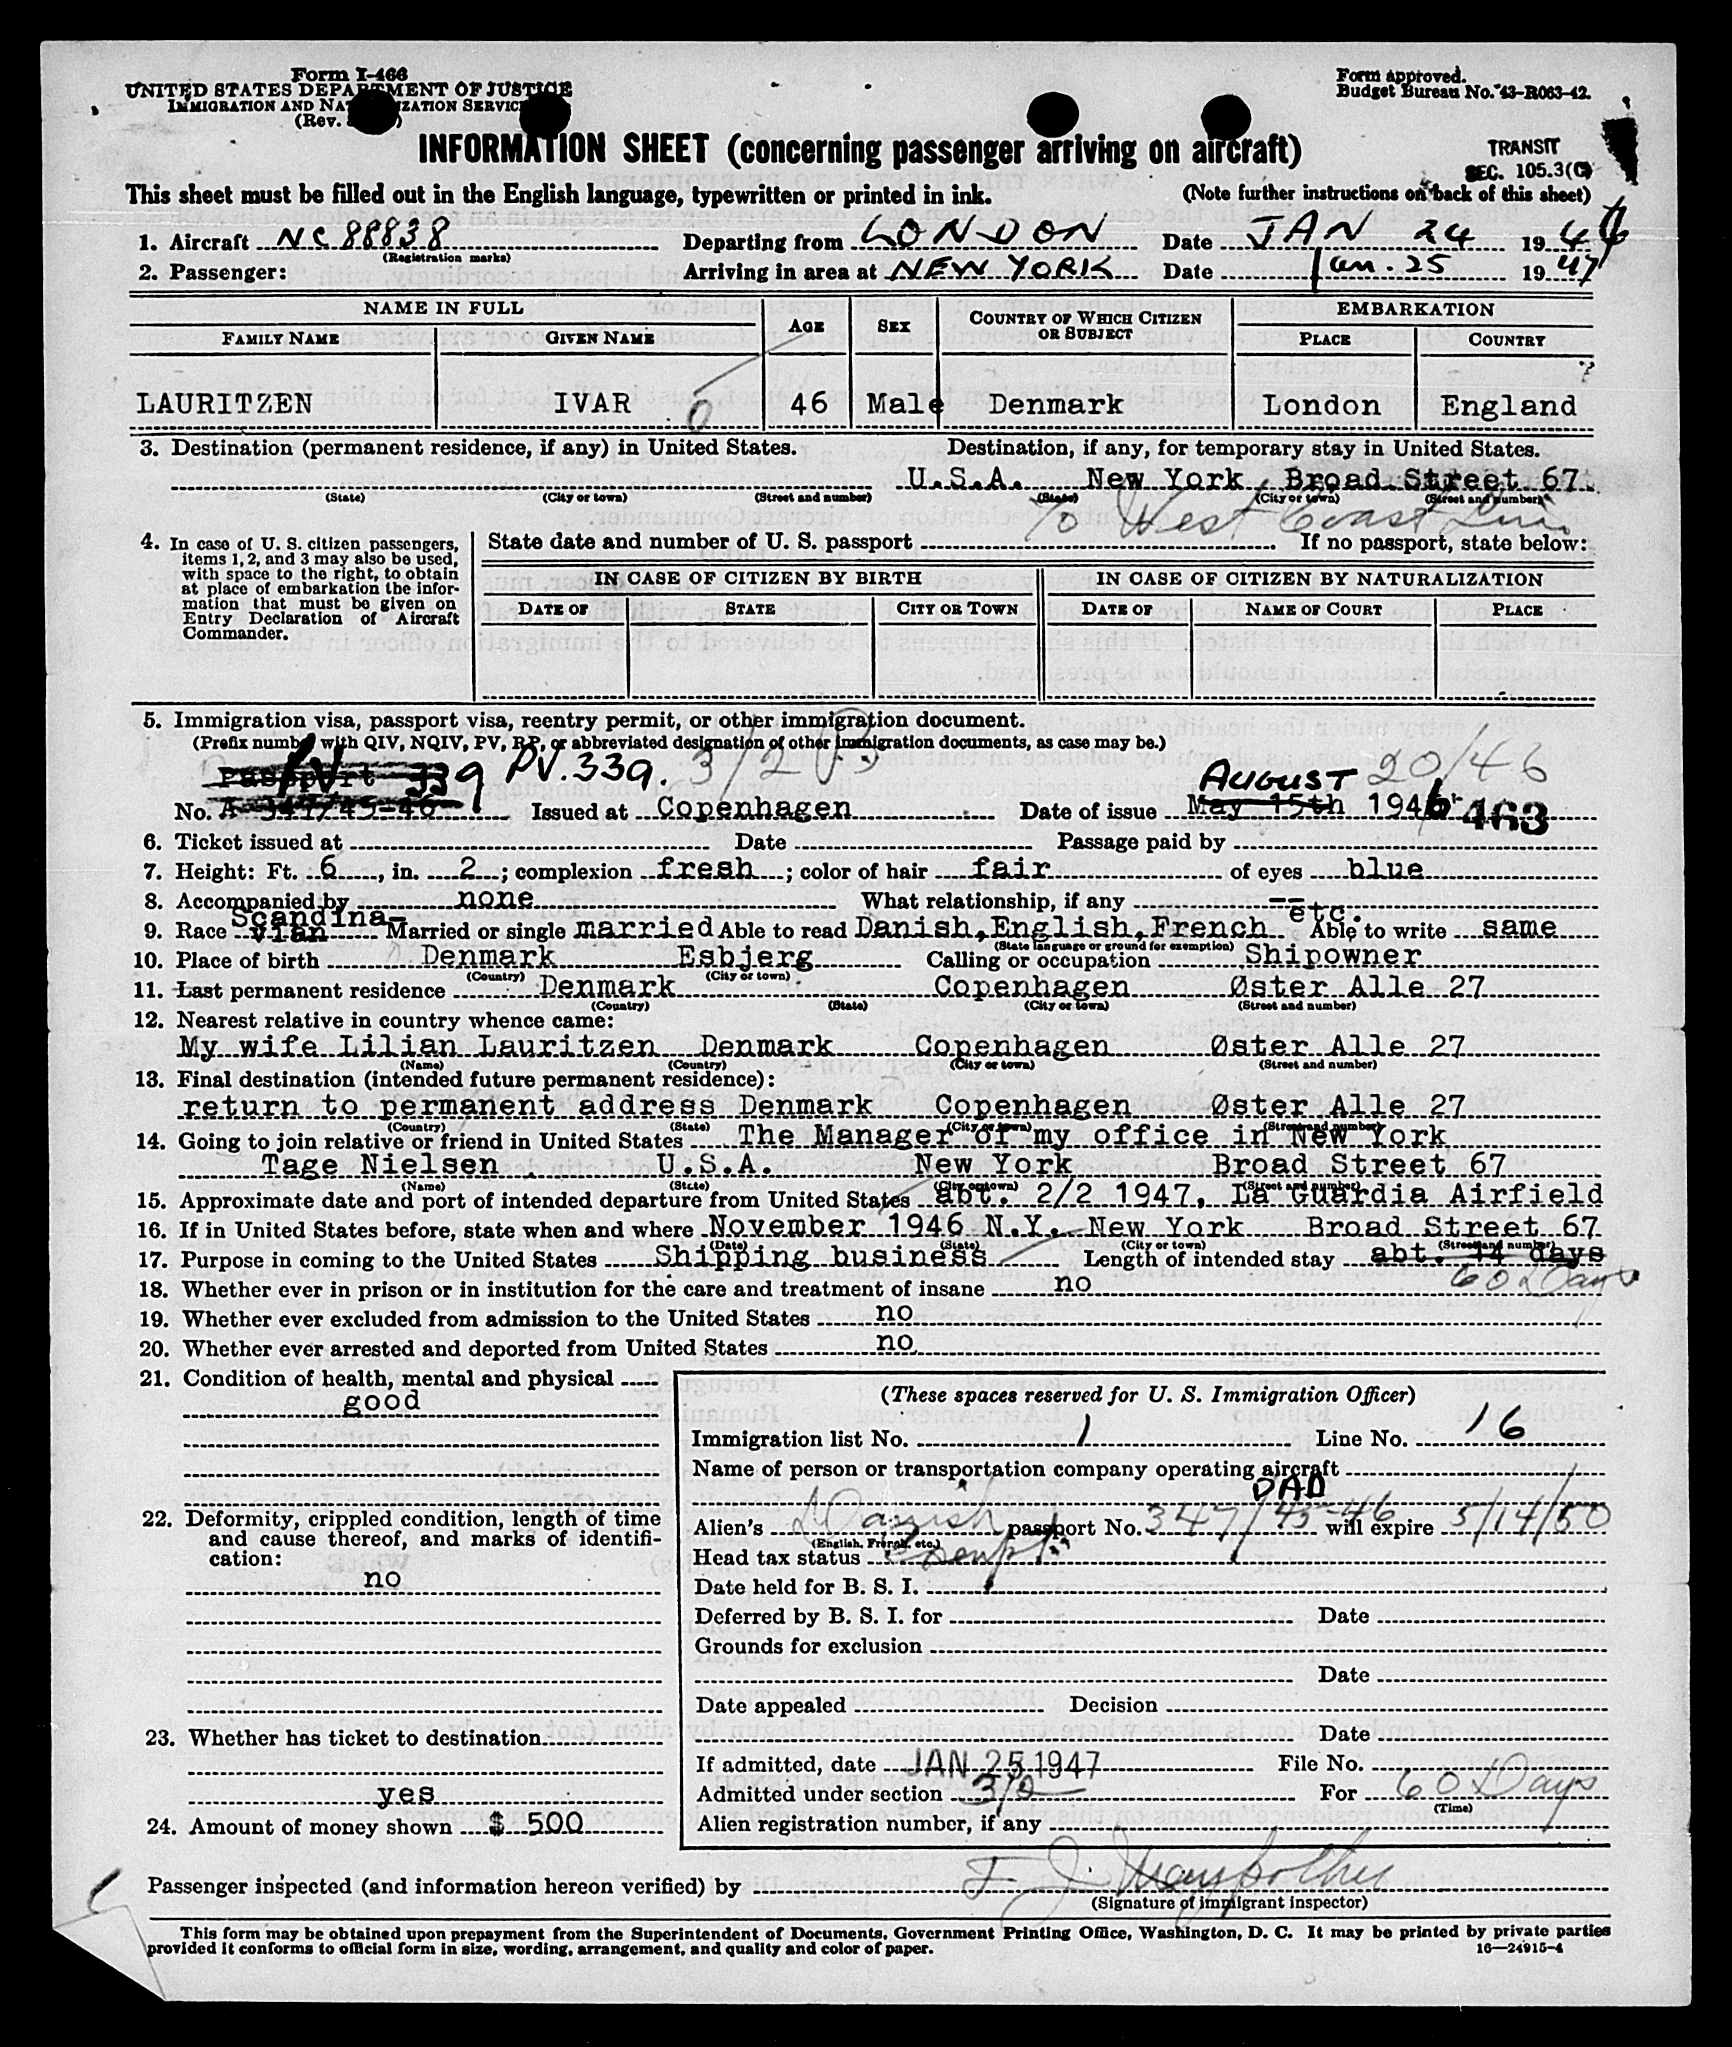 Form I-466
UNITED STATES DEPARTMENT OF JUSTICE
IMMIGRATION AND NATURALIZATION SERVICE
(Rev.
Form approved.
Budget Bureau No. 43-R063-42.
INFORMATION SHEET (concerning passenger arriving on aircraft)
TRANSIT
SEC. 105.3(C)
This sheet must be filled out in the English language, typewritten or printed in ink. (Note further instructions on back of this sheet)
1. Aircraft NC 88838 Departing from LONDON Date JAN 24 19
(Registration marks)
2. Passenger: Arriving in area at NEW YORK Date Jan. 25 1947
NAME IN FULL AGE SEX COUNTRY OF WHICH CITIZEN OR SUBJECT EMBARKATION
FAMILY NAME GIVEN NAME PLACE COUNTRY
LAURITZEN IVAR 46 Male Denmark London England
3. Destination (permanent residence, if any) in United States. Destination, if any, for temporary stay in United States.
U.S.A. New York Broad Street 67
(State) (City or town) (Street and number) (State) (City or town) (Street and number)
c/o West Coast Line
4. In case of U. S. citizen passengers, items 1, 2, and 3 may also be used, with space to the right, to obtain at place of embarkation the information that must be given on Entry Declaration of Aircraft Commander.
State date and number of U. S. passport If no passport, state below:
IN CASE OF CITIZEN BY BIRTH IN CASE OF CITIZEN BY NATURALIZATION
DATE OF STATE CITY OR TOWN DATE OF NAME OF COURT PLACE
5. Immigration visa, passport visa, reentry permit, or other immigration document.
(Prefix number with QIV, NQIV, PV, RP, or abbreviated designation of other immigration documents, as case may be.)
Passport PV 339 PV. 339. 3/2 AUGUST 20/46
No. A 347/45-46 Issued at Copenhagen Date of issue May 15th 1946 463
6. Ticket issued at Date Passage paid by
7. Height: Ft. 6, in. 2; complexion fresh; color of hair fair of eyes blue
8. Accompanied by none What relationship, if any --
9. Race Scandinavian Married or single married Able to read Danish, English, French etc. Able to write same
(State language or ground for exemption)
10. Place of birth Denmark Esbjerg Calling or occupation Shipowner
(Country) (City or town)
11. Last permanent residence Denmark Copenhagen Øster Alle 27
(Country) (State) (City or town) (Street and number)
12. Nearest relative in country whence came:
My wife Lilian Lauritzen Denmark Copenhagen Øster Alle 27
(Name) (Country) (City or town) (Street and number)
13. Final destination (intended future permanent residence):
return to permanent address Denmark Copenhagen Øster Alle 27
(Country) (State) (City or town) (Street and number)
14. Going to join relative or friend in United States The Manager of my office in New York
Tage Nielsen U.S.A. New York Broad Street 67
(Name) (State) (City or town) (Street and number)
15. Approximate date and port of intended departure from United States abt. 2/2 1947, La Guardia Airfield
16. If in United States before, state when and where November 1946 N.Y. New York Broad Street 67
(Date) (State) (City or town) (Street and number)
17. Purpose in coming to the United States Shipping business Length of intended stay abt. 14 days
60 Days
18. Whether ever in prison or in institution for the care and treatment of insane no
19. Whether ever excluded from admission to the United States no
20. Whether ever arrested and deported from United States no
21. Condition of health, mental and physical
good
22. Deformity, crippled condition, length of time and cause thereof, and marks of identification:
no
23. Whether has ticket to destination
yes
24. Amount of money shown $ 500
(These spaces reserved for U. S. Immigration Officer)
Immigration list No. 1 Line No. 16
Name of person or transportation company operating aircraft
Alien's Danish passport No. 347/45-46 will expire 5/14/50
(English, French, etc.)
Head tax status exempt
Date held for B. S. I.
Deferred by B. S. I. for Date
Grounds for exclusion
Date
Date appealed Decision
Date
If admitted, date JAN 25 1947 File No.
Admitted under section 3/2 For 60 Days
(Time)
Alien registration number, if any
Passenger inspected (and information hereon verified) by
(Signature of immigrant inspector)
This form may be obtained upon prepayment from the Superintendent of Documents, Government Printing Office, Washington, D. C. It may be printed by private parties
provided it conforms to official form in size, wording, arrangement, and quality and color of paper.
16—24915-4